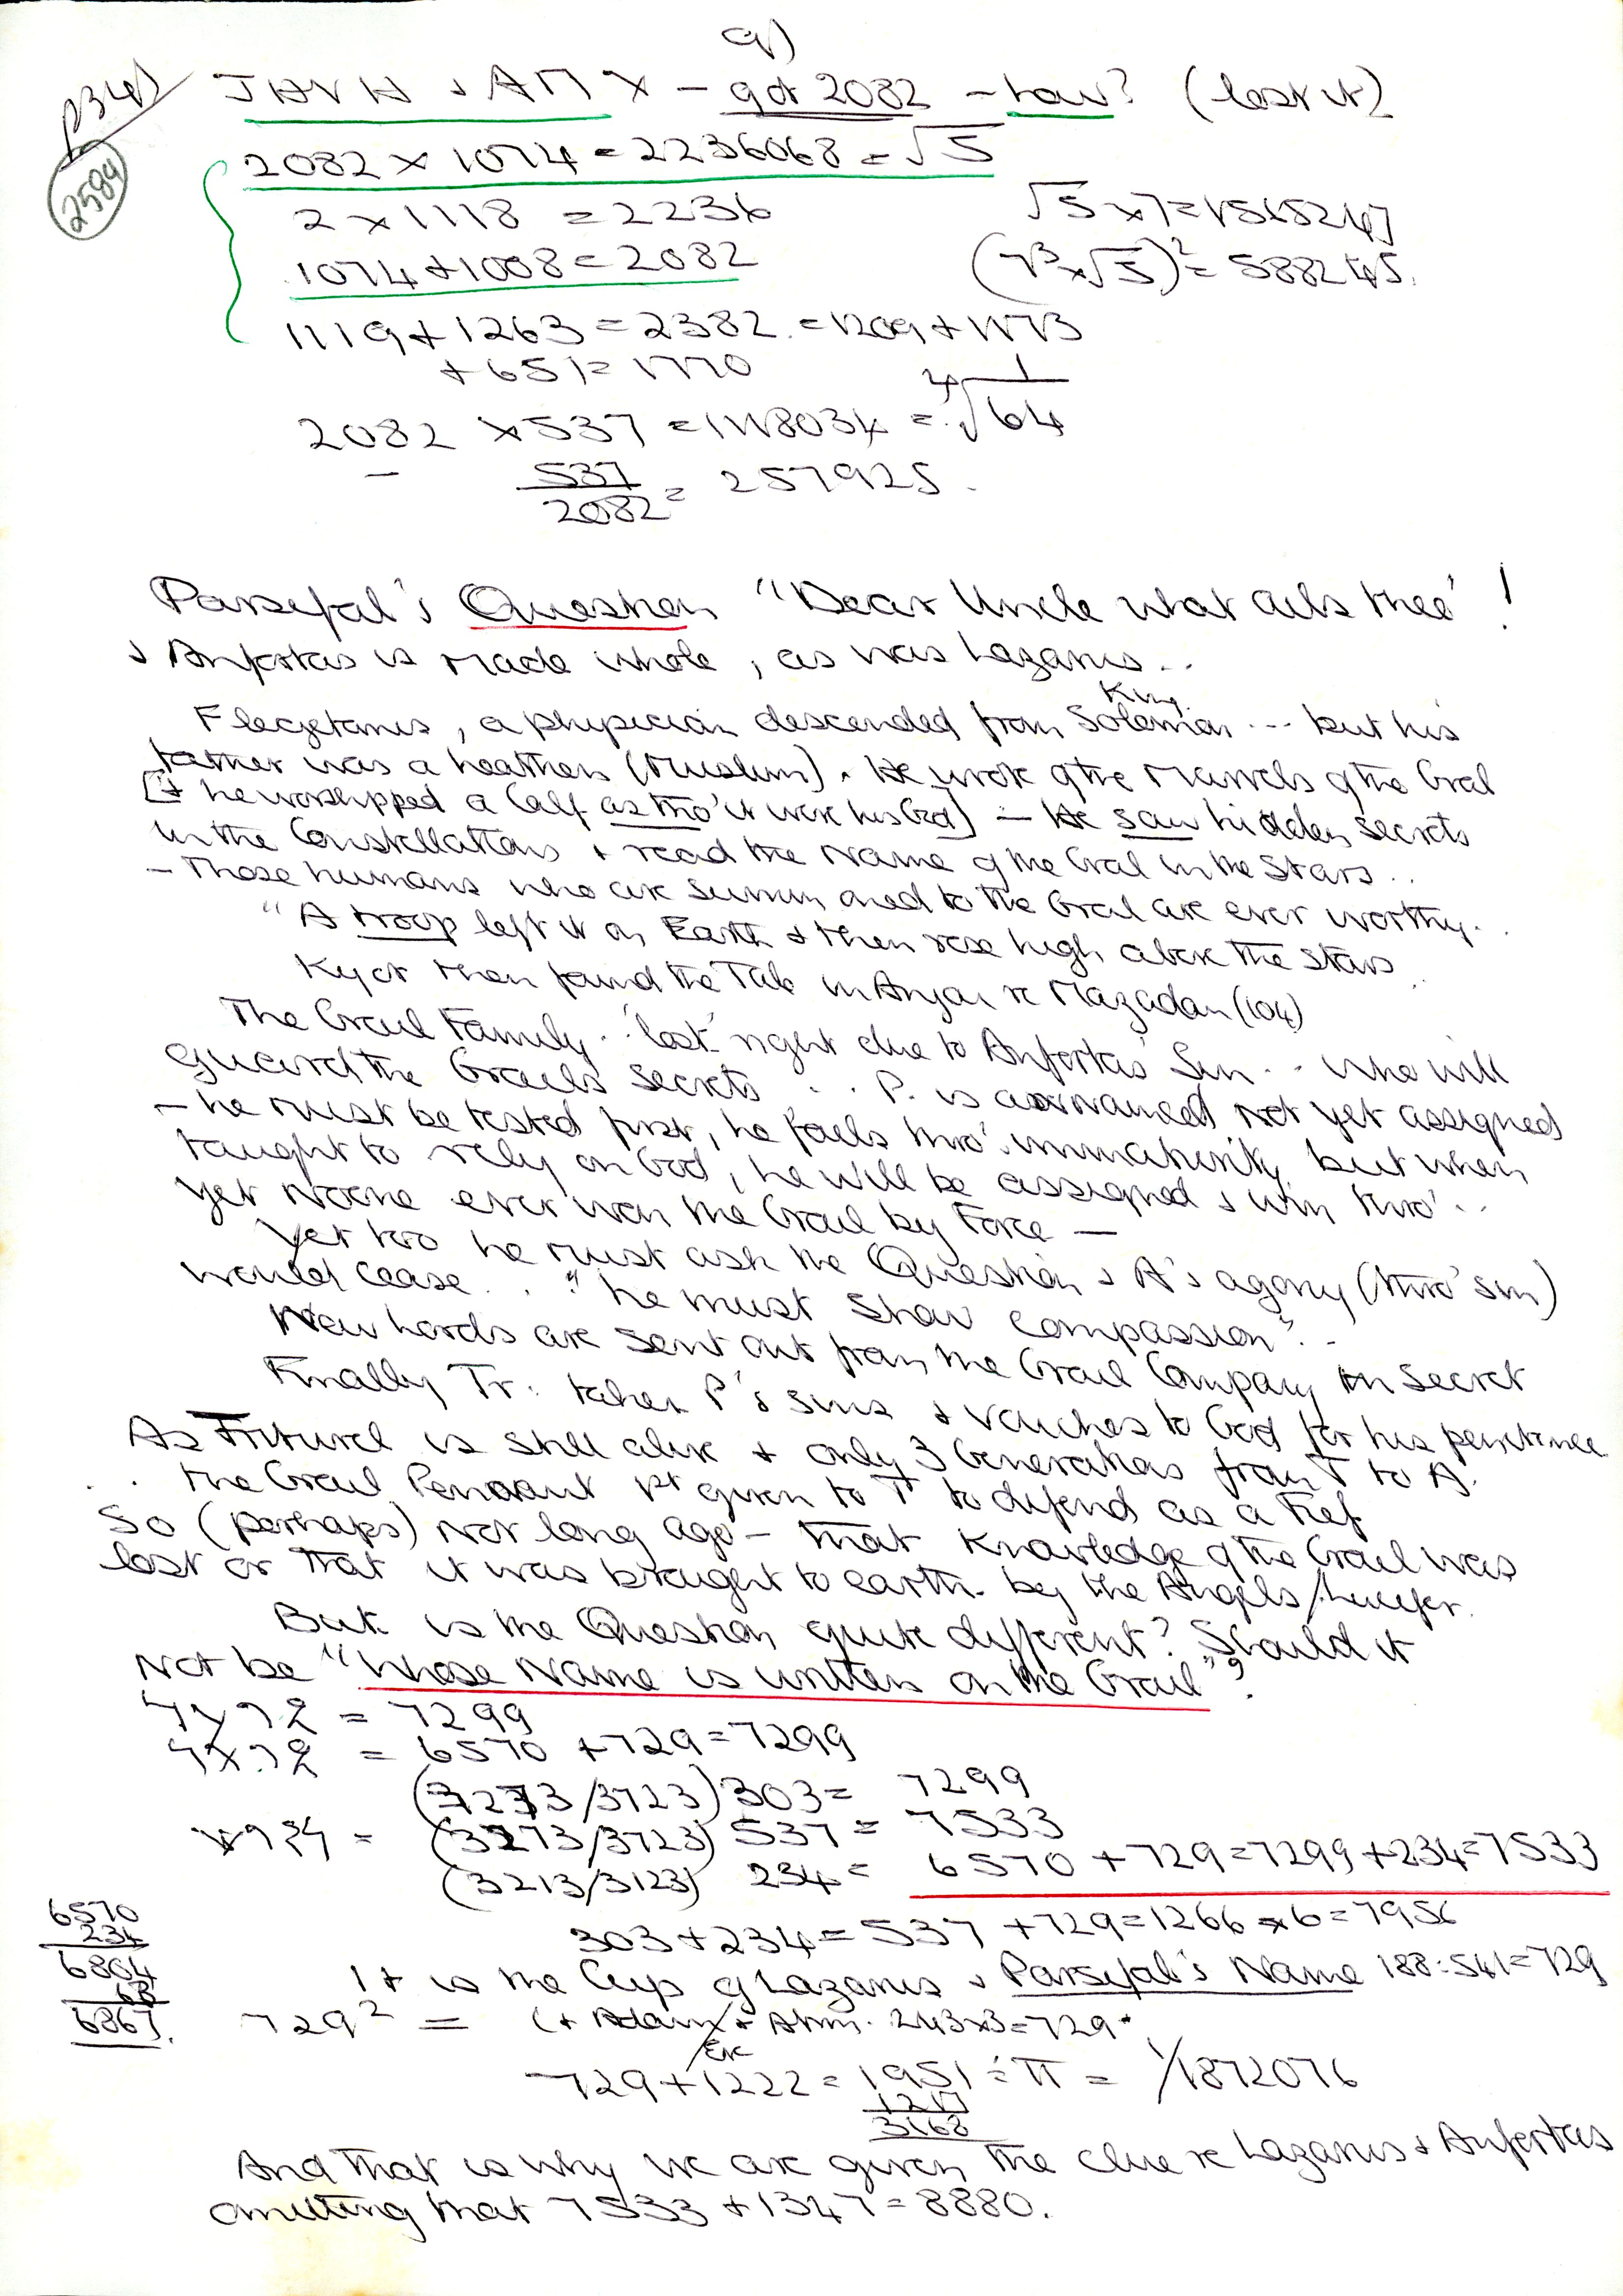 9)
p348
2589
JHVH + AMX – got 2082 – how? (lost it)
2082 x 1074 = 2236068 = √5
2 x 1118 = 2236
√5 x 7 = 1565247
1074 + 1008 = 2082
(7³ x √5)² = 588245.
1119 + 1263 = 2382. = 1209 + 1173
+ 651 = 1770
2082 x 537 = 1118034 =
537
2082 = 257925.
Parsefal's Question "Dear Uncle what ails thee" !
+ Anfortas is made whole, as was Lazarus..
Flegetanis, a physician descended from King Soloman ... but his
father was a heathen (Muslim). He wrote of the Marvels of the Gral
[& he worshipped a Calf as tho' it were his God] – He saw hidden secrets
in the Constellations + read the Name of the Gral in the Stars..
– Those humans who are summoned to the Gral are ever worthy..
"A troop left it on Earth & then rose high above the stars
Kyot then found the Tale in Anjou re Mazadan (104)
The Grail Family.. 'lost' right due to Anfortas' Sin.. who will
guard the Grail's Secrets .. P. is not yet assigned
– he must be tested first, he fails thro' immaturity but when
taught to rely on God, he will be assigned & win thro'..
Yet Noone ever won the Grail by Force –
Yet too he must ask the Question & A's agony (thro' sin)
would cease .. "he must show compassion"..
New Lords are sent out from the Grail Company in Secret
Finally Tr: takes P's sins & vouches to God for his penitence
As Titurel is still alive + only 3 Generations from T to A.
.. the Grail Pennant 1st given to T to defend as a Fief
So (perhaps) not long ago – that knowledge of the Grail was
lost or that it was brought to earth by the Angels/Lucifer.
But is the Question quite different? Should it
not be "Whose Name is written on the Grail"?
= 7299
= 6570 + 729 = 7299
(3273/3723) 303 = 7299
= (3273/3723) 537 = 7533
(3213/3123) 234 = 6570 + 729 = 7299 + 234 = 7533
303 + 234 = 537 + 729 = 1266 x 6 = 7956
6570
234
6804
63
6867.
It is the Cup of Lazarus + Parsefal's Name 188:541 = 729
729² = (+ Adam + Ahm. 243x3 = 729.
729 + 1222 = 1951 ÷ π = 1/1872076
1217
3168
And that is why we are given the clue re Lazarus + Anfortas
omitting that 7533 + 1347 = 8880.